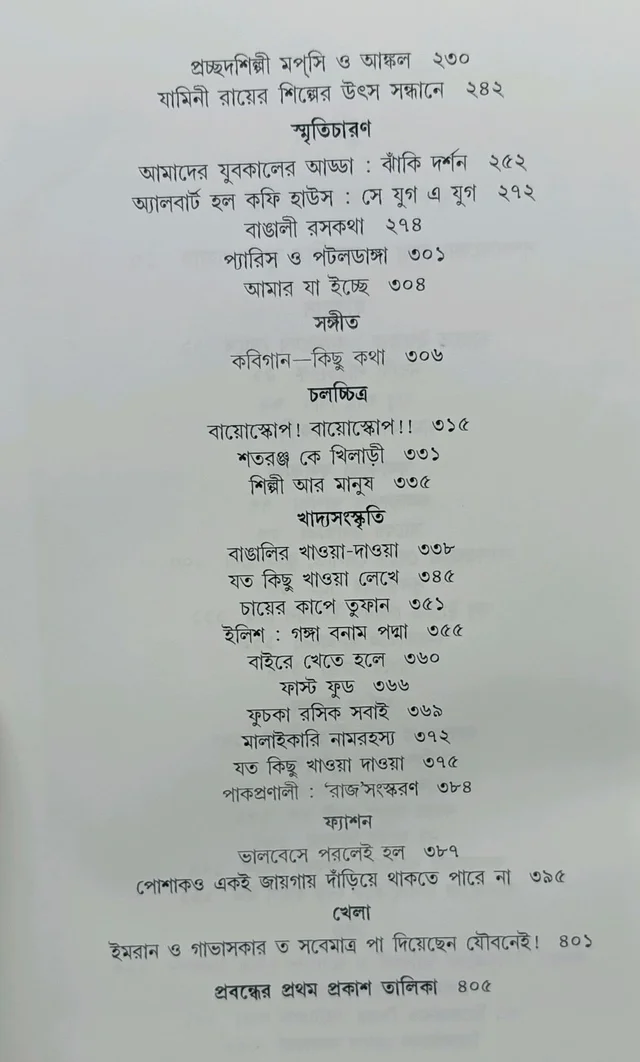 প্রচ্ছদশিল্পী মপ্‌সি ও আঙ্কল ২৩০
যামিনী রায়ের শিল্পের উৎস সন্ধানে ২৪২
স্মৃতিচারণ
আমাদের যুবকালের আড্ডা : ঝাঁকি দর্শন ২৫২
অ্যালবার্ট হল কফি হাউস : সে যুগ এ যুগ ২৭২
বাঙালী রসকথা ২৭৪
প্যারিস ও পটলডাঙ্গা ৩০১
আমার যা ইচ্ছে ৩০৪
সঙ্গীত
কবিগান—কিছু কথা ৩০৬
চলচ্চিত্র
বায়োস্কোপ! বায়োস্কোপ!! ৩১৫
শতরঞ্জ কে খিলাড়ী ৩৩১
শিল্পী আর মানুষ ৩৩৫
খাদ্যসংস্কৃতি
বাঙালির খাওয়া-দাওয়া ৩৩৮
যত কিছু খাওয়া লেখে ৩৪৫
চায়ের কাপে তুফান ৩৫১
ইলিশ : গঙ্গা বনাম পদ্মা ৩৫৫
বাইরে খেতে হলে ৩৬০
ফাস্ট ফুড ৩৬৬
ফুচকা রসিক সবাই ৩৬৯
মালাইকারি নামরহস্য ৩৭২
যত কিছু খাওয়া দাওয়া ৩৭৫
পাকপ্রণালী : ‘রাজ’সংস্করণ ৩৮৪
ফ্যাশন
ভালবেসে পরলেই হল ৩৮৭
পোশাকও একই জায়গায় দাঁড়িয়ে থাকতে পারে না ৩৯৫
খেলা
ইমরান ও গাভাসকার ত সবেমাত্র পা দিয়েছেন যৌবনেই! ৪০১
প্রবন্ধের প্রথম প্রকাশ তালিকা ৪০৫